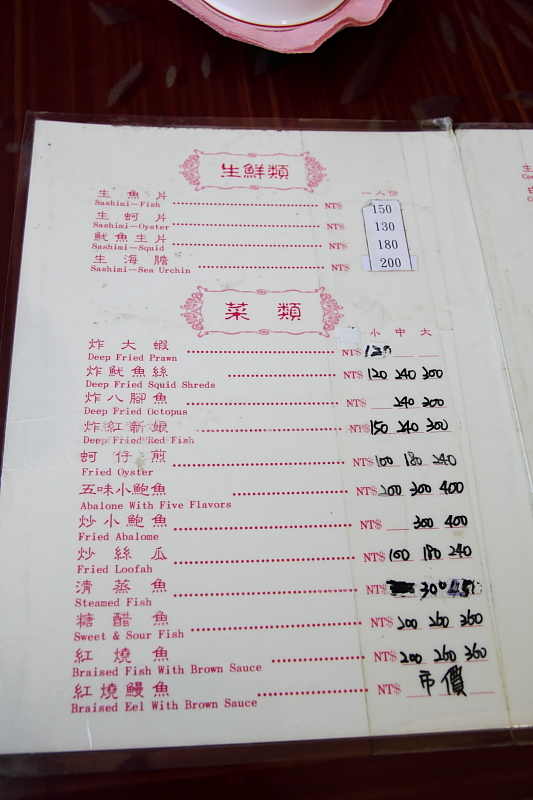 生鮮類
一人份
生魚片 NT$ 150
Sashimi—Fish
生蚵片 NT$ 130
Sashimi—Oyster
魷魚生片 NT$ 180
Sashimi—Squid
生海膽 NT$ 200
Sashimi—Sea Urchin
菜類
小 中 大
炸大蝦 NT$ 120
Deep Fried Prawn
炸魷魚絲 NT$ 120 240 300
Deep Fried Squid Shreds
炸八腳魚 NT$ 240 300
Deep Fried Octopus
炸紅新娘 NT$ 150 240 300
Deep Fried Red Fish
蚵仔煎 NT$ 100 180 240
Fried Oyster
五味小鮑魚 NT$ 200 300 400
Abalone With Five Flavors
炒小鮑魚 NT$ 300 400
Fried Abalome
炒絲瓜 NT$ 100 180 240
Fried Loofah
清蒸魚 NT$ 300
Steamed Fish
糖醋魚 NT$ 200 260 360
Sweet & Sour Fish
紅燒魚 NT$ 200 260 360
Braised Fish With Brown Sauce
紅燒鰻魚 NT$ 市價
Braised Eel With Brown Sauce